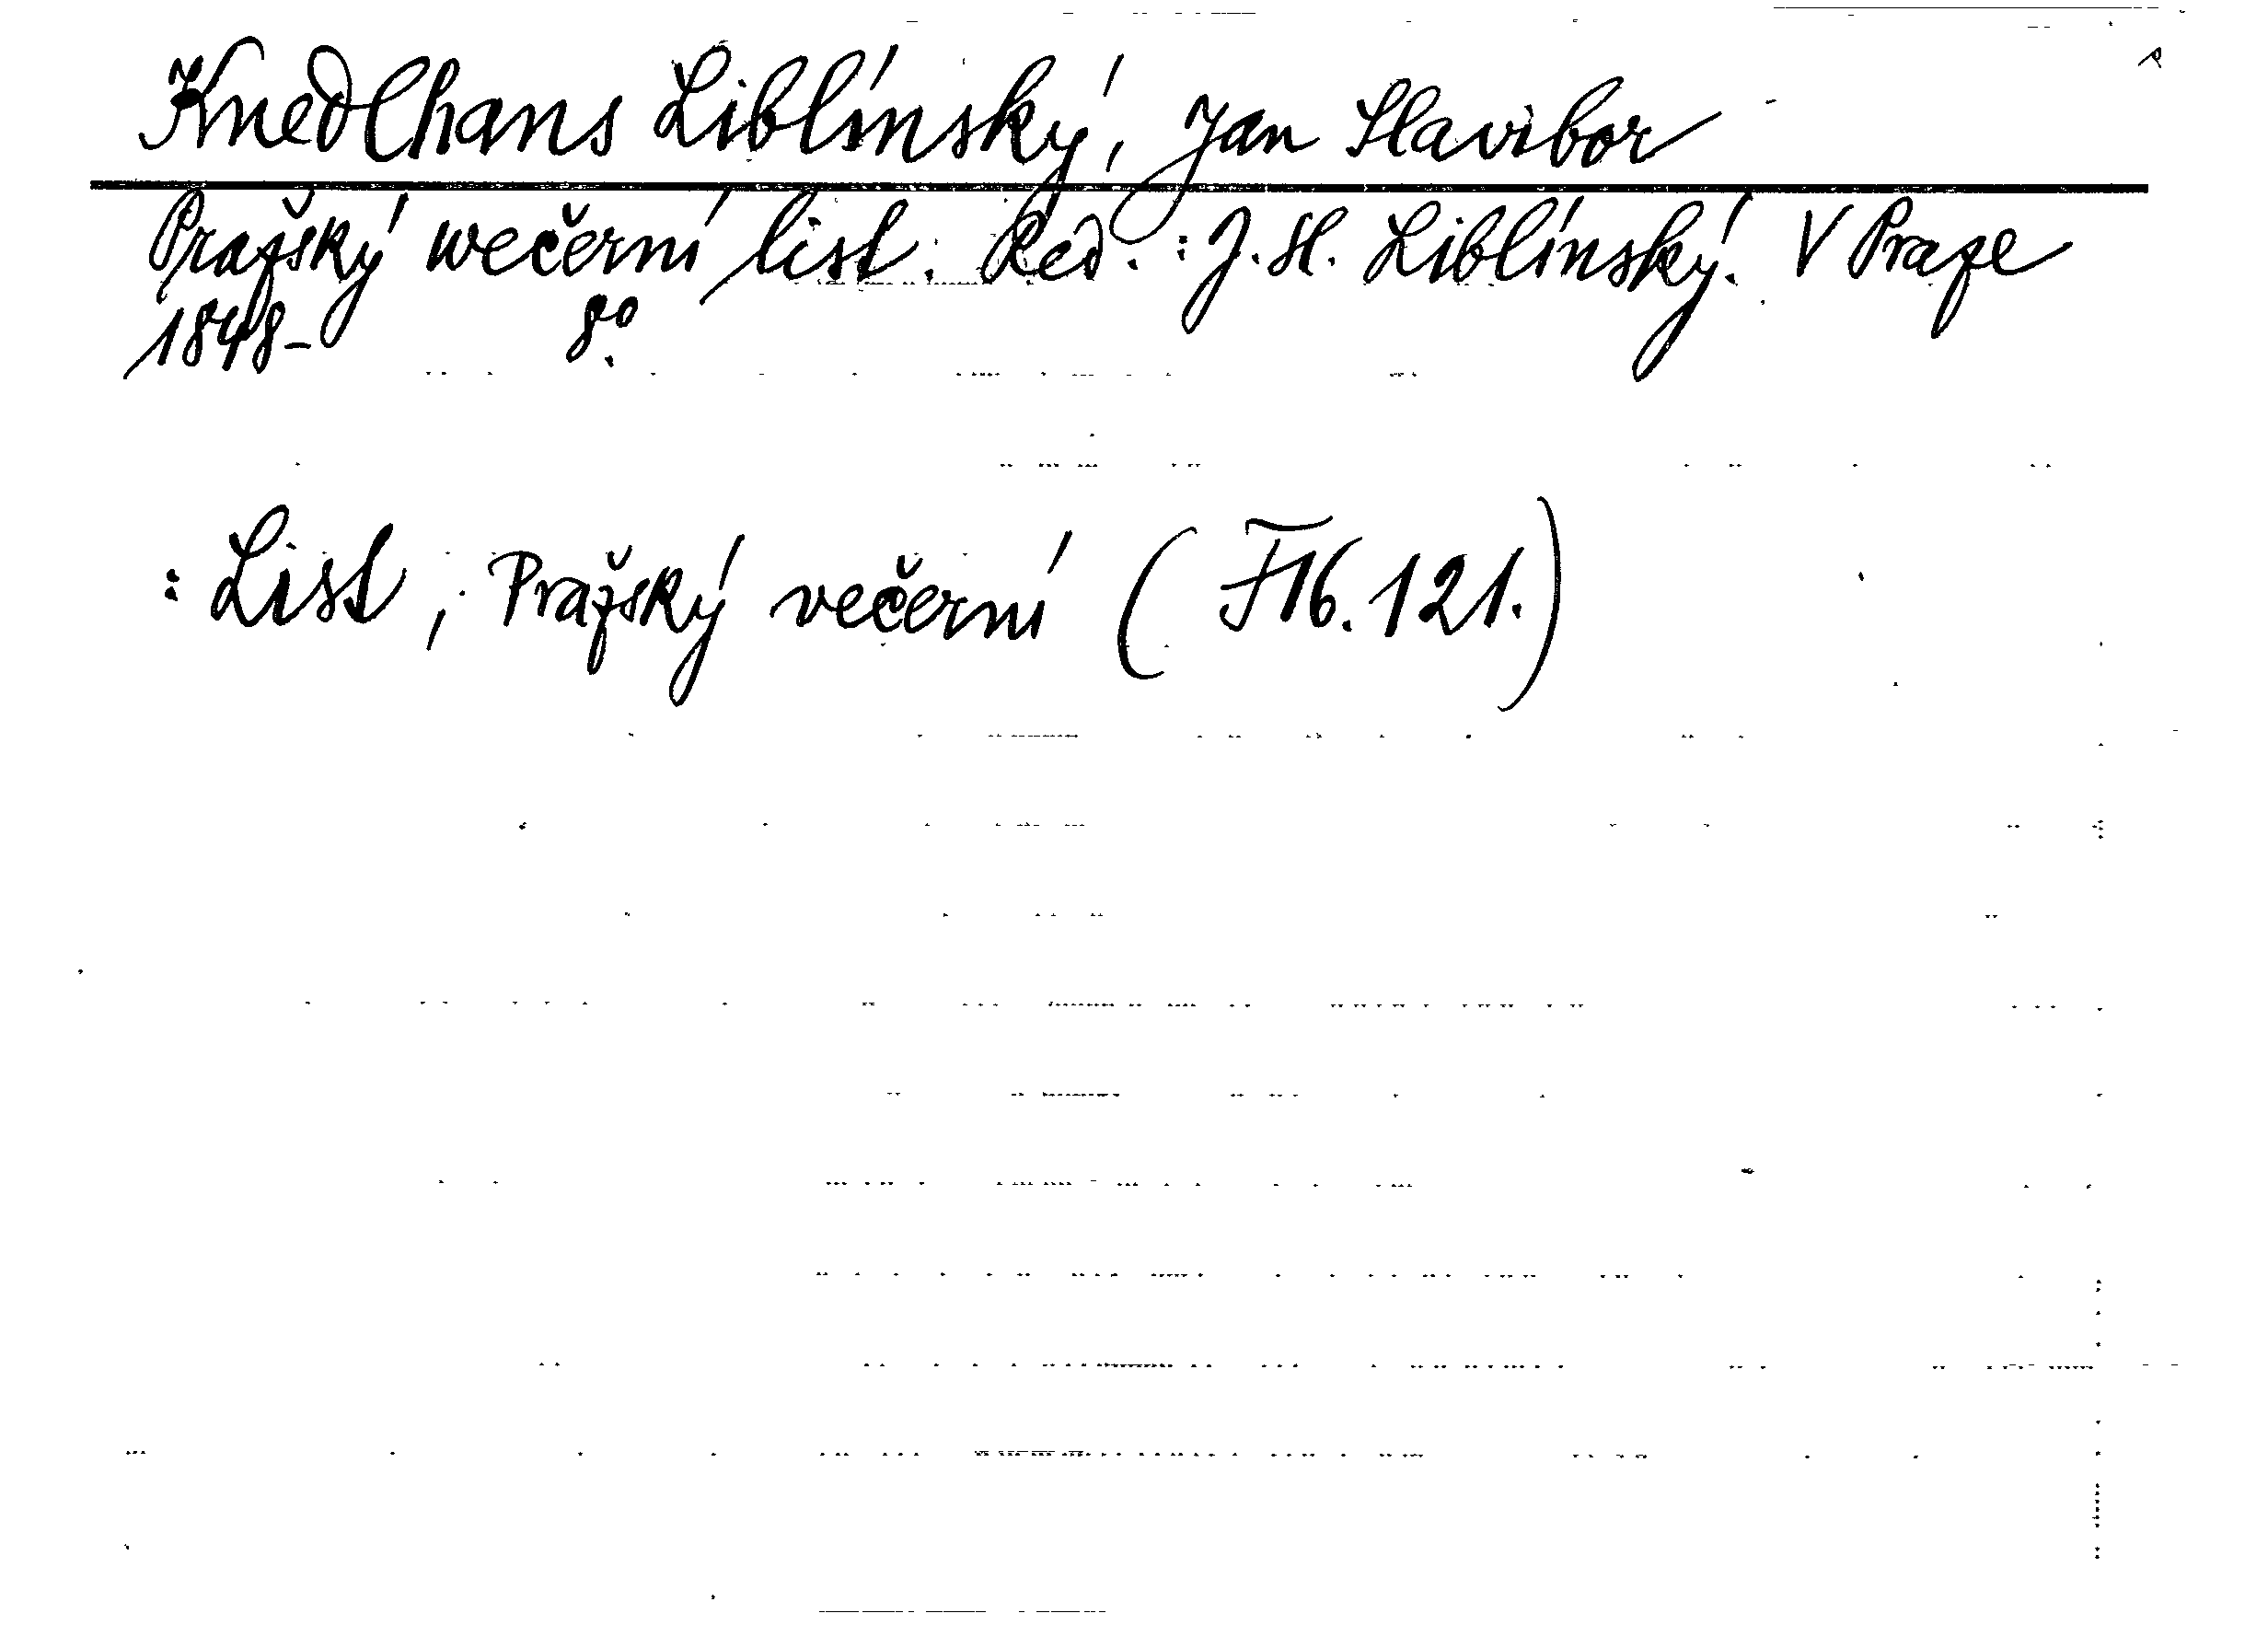 Knedlhans Liblínský, Jan Slavibor
Pražský wečerní list. Red.: J. Sl. Liblínský. V Praze
1848- 8o.
: List, Pražský večerní (F16.121.)